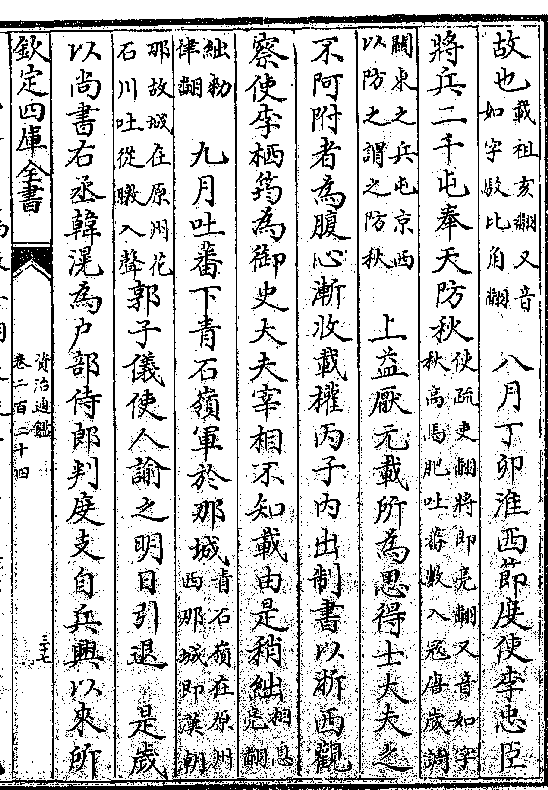 故也載祖亥翻又音如字數比角翻　八月丁卯淮西節度使李忠臣
將兵二千屯奉天防秋使疏吏翻將即亮翻又音如字秋高馬肥吐蕃數入寇唐歲調
關東之兵屯京西以防之謂之防秋　上益厭元載所為思得士大夫之
不阿附者為腹心漸收載權丙子内出制書以浙西觀
察使李栖筠為御史大夫宰相不知載由是稍絀相息亮翻
絀勅律翻　九月吐蕃下青石嶺軍於那城青石嶺在原州西那城即漢朝
那故城在原州花石川吐從暾入聲郭子儀使人諭之明日引退　是歳
以尚書右丞韓滉為户部侍郎判度支自兵興以來所
欽定四庫全書
資治通鑑
卷二百二十四
三十七